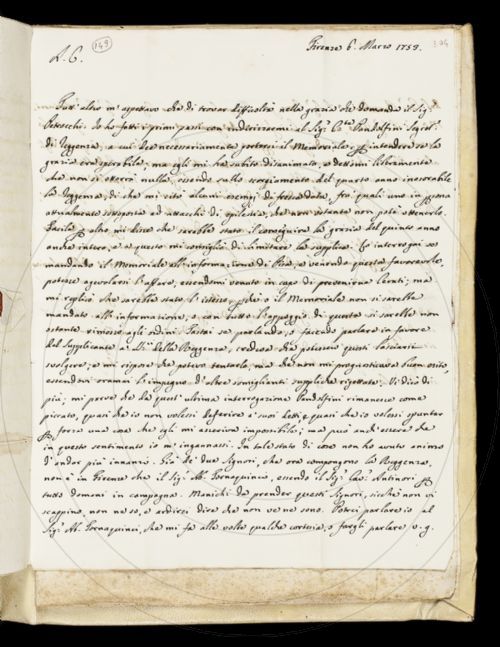 149
Firenze 6. Marzo 1759.
104
A. C.
Tutt' altro m' aspettavo che di trovar difficoltà nella grazia che domanda il Sig.r
Io ho fatti i primi passi con indirizzarmi al Sig.r Pandolfini Segret.
di Reggenza, a cui dee necessariamente portarsi il Memoriale, intendere se la
grazia era sperabile; ma egli mi ha subito disanimato, e dettomi liberamente
che non si otterrà nulla, essendo sullo scempiamento del quarto anno inesorabile
la Reggenza, di che mi citò alcuni esempi di fresca data, fra quali uno in persona
attualmente sottoposta ad attacchi di epilesia, che non ostante non poté ottenerlo.
Facile altro mi disse che sarebbe stato il conseguire la grazia del quinto anno
anche intero, e a questo mi consigliò di limitare la supplica. Lo interrogai se
mandando il Memoriale all' informazione di Pisa, e venendo questa favorevole,
potesse agevolarsi l'affare, essendomi venuto in capo di prevenirne Cerati; ma
mi replicò che sarebbe stato l'istesso, perché o il Memoriale non si sarebbe
mandato all' informazione, o con tutto l'appoggio di questa si sarebbe non
ostante rimesso agli ordini. Tentai se parlando, o facendo parlare in favore
del Supplicante a' della Reggenza, credeva che potessero questi lasciarsi
svolgere; e mi rispose che potevo tentarlo, ma che non mi prognosticava buon esito,
essendovi oramai l'impegno d'altre somiglianti suppliche rigettate. Vi dirò di
più; mi parve che da quest' ultima interrogazione Pandolfini rimanesse come
piccato, quasi che io non volessi deferire a' suoi detti, e quasi che io volessi spuntar
forza una cosa che egli mi asseriva impossibile; ma può anch' essere che
in questo sentimento io m' ingannassi. In tale stato di cose non ho avuto animo
d' andar più innanzi. Già de' due Signori, che ora compongono la Reggenza,
non è in Firenze che il Sig.r Ab. Tornaquinci, essendo il Sig.r Cav. Antinori
tutto domani in campagna. Manichi da prender questi Signori, sicché non vi
scappino, non ne so, e ardirei dire che non ve ne sono. Potrei parlare io al
Sig.r Ab. Tornaquinci, che mi fa alle volte qualche cortesia, o fargli parlare v. g.